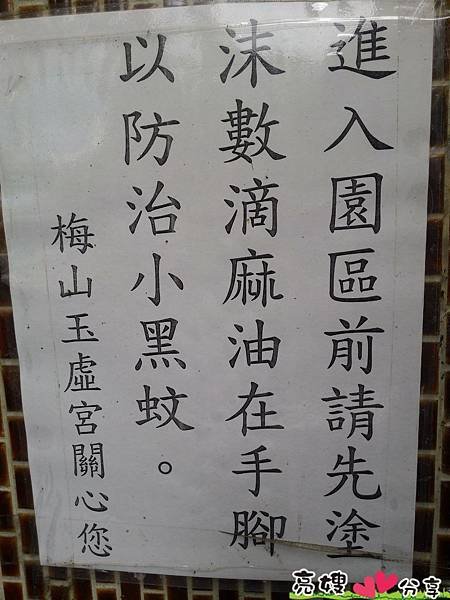 進入園區前請先塗
沫數滴麻油在手腳
以防治小黑蚊。
梅山玉虛宮關心您
亮嫂 分享